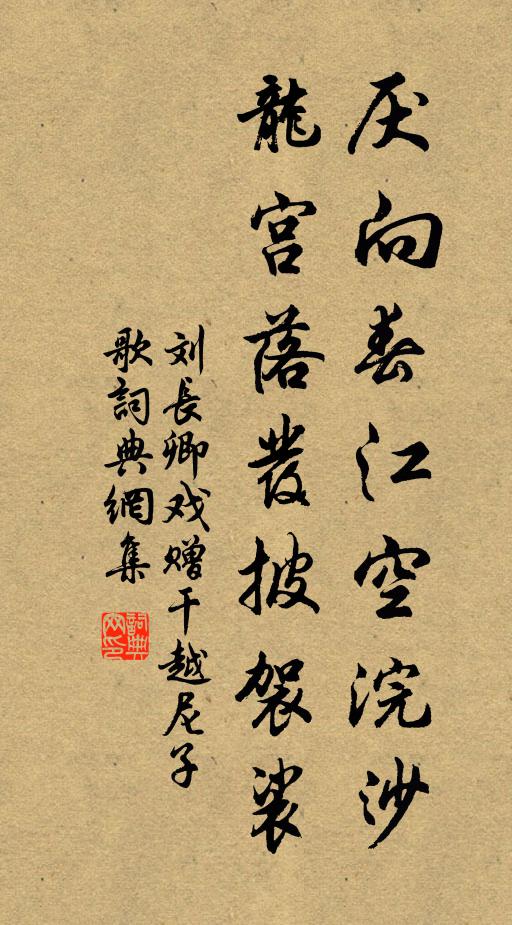 厌向春江空浣沙
龍宫落發披袈裟
刘長卿戏赠干越尼子
歌詞典網集
詞典网印